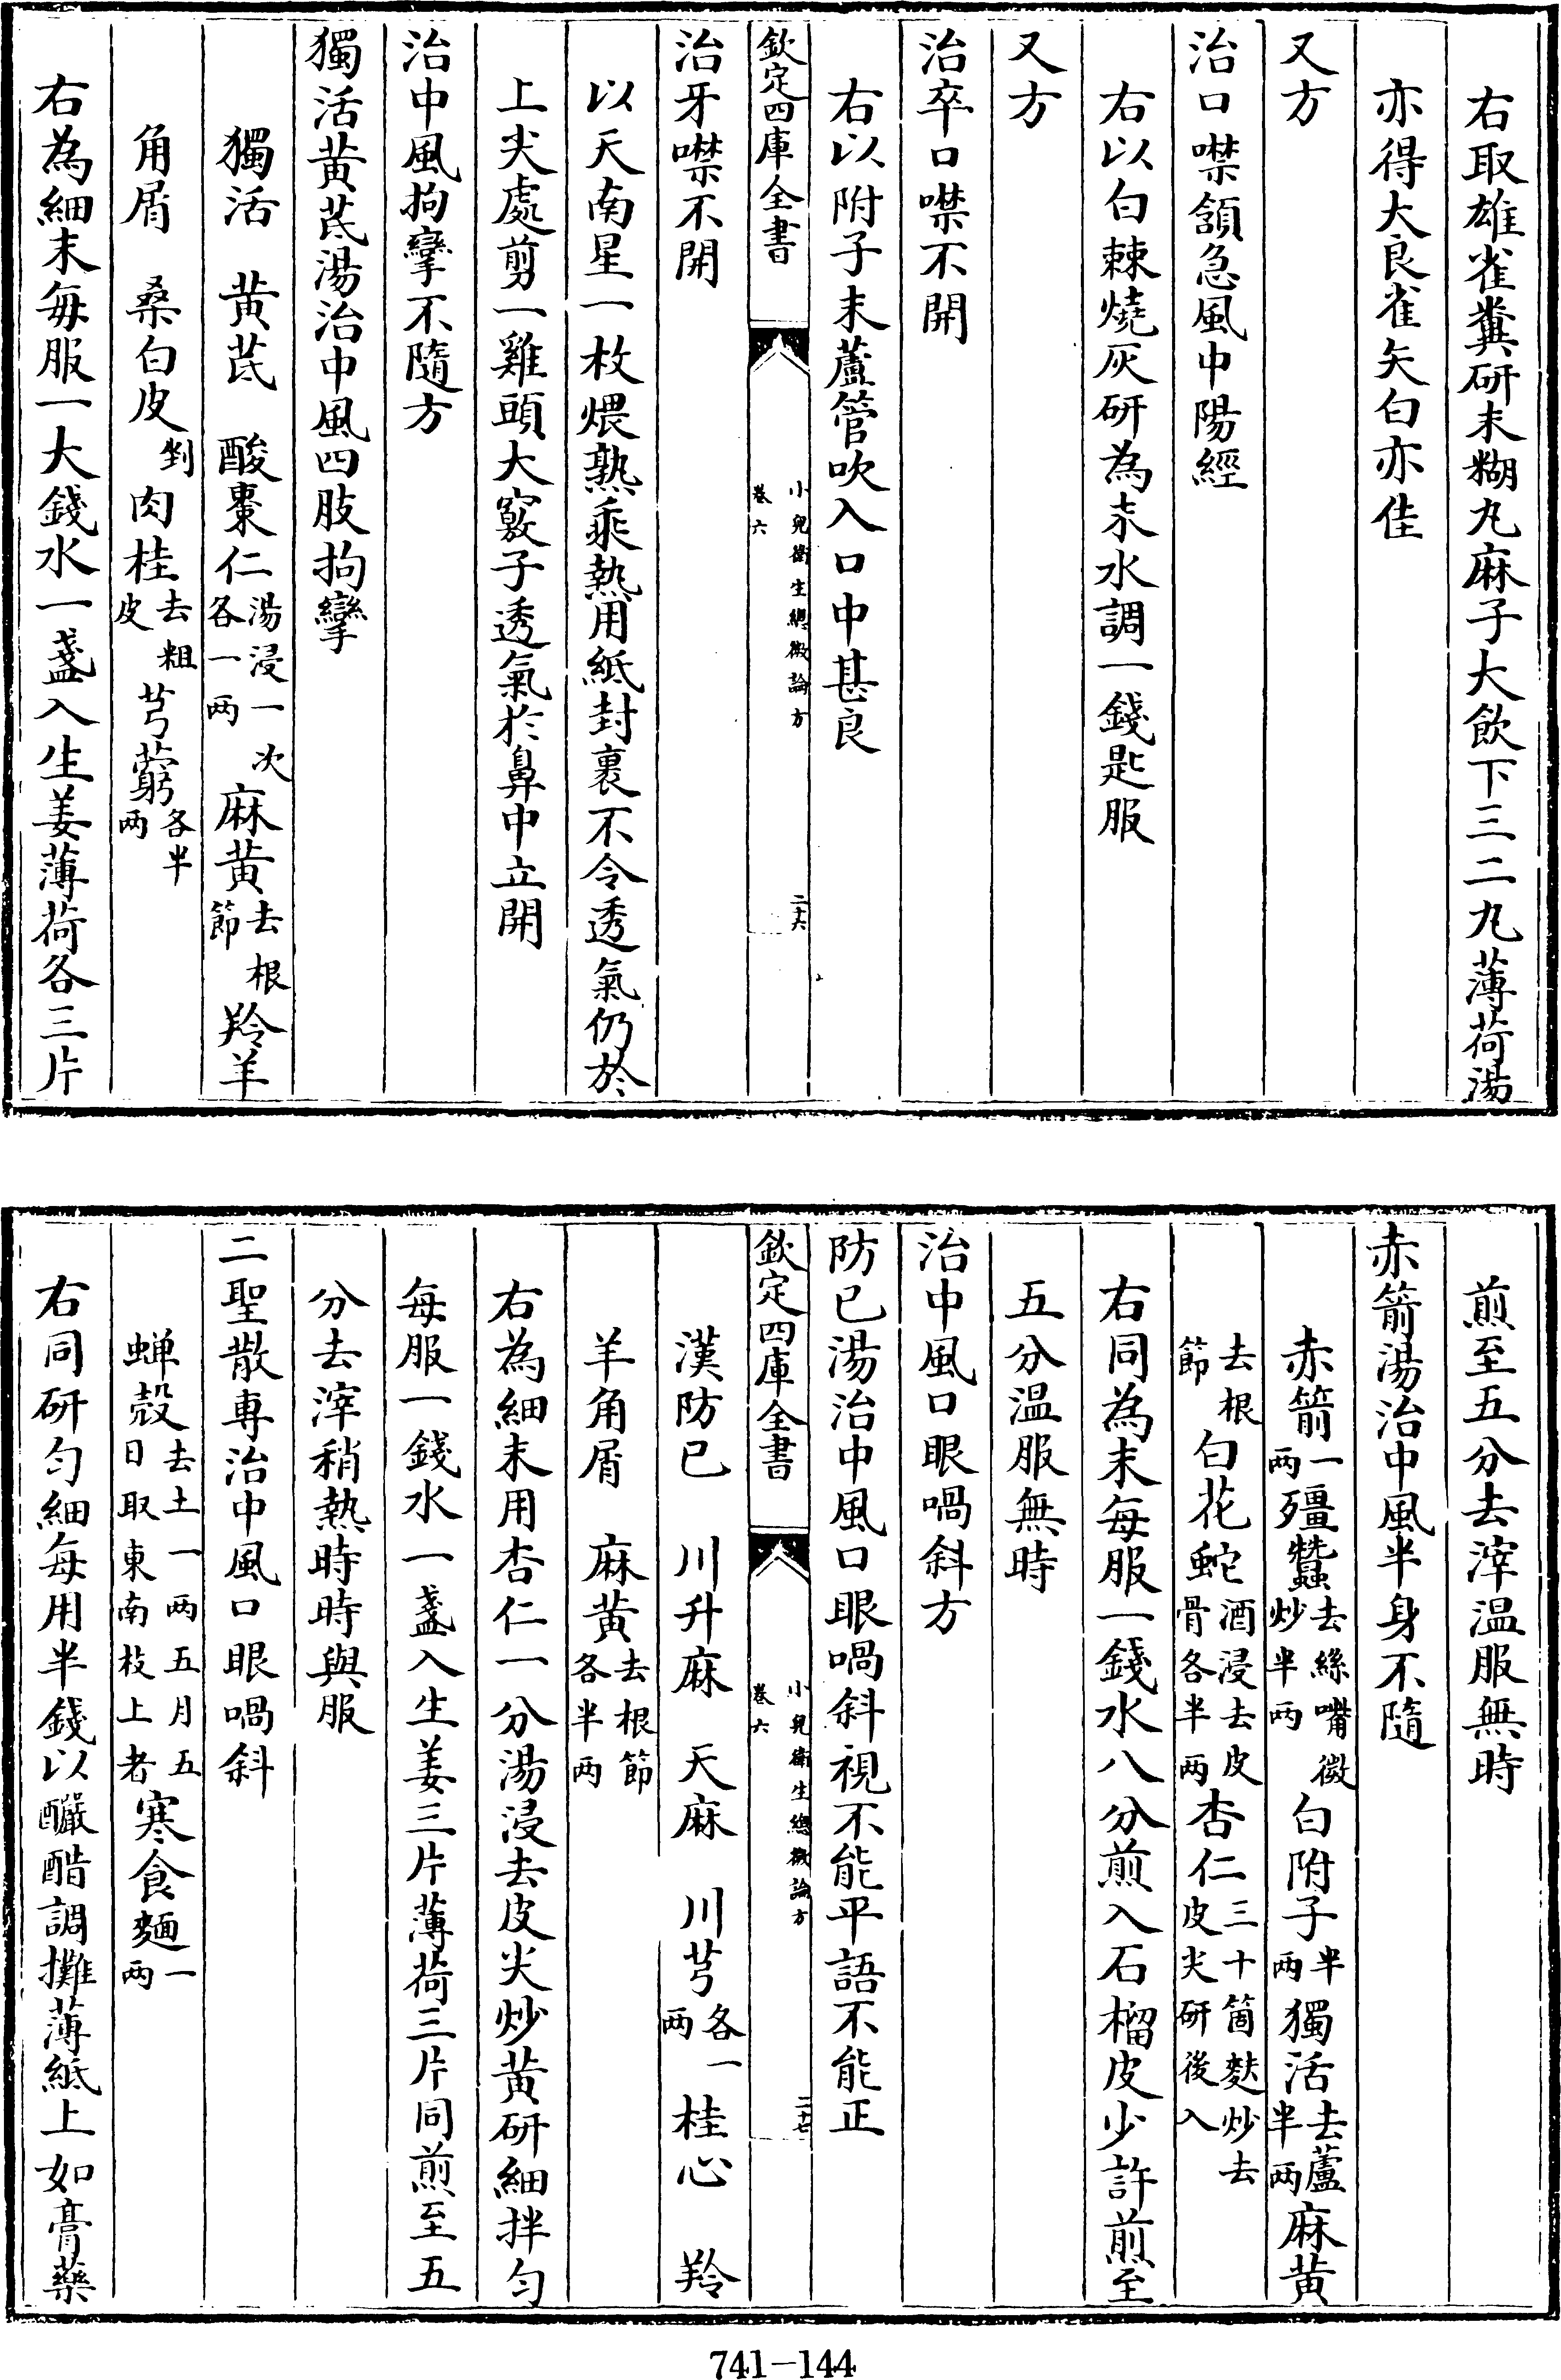 右取雄雀糞研末糊丸麻子大飲下三二九薄荷湯
亦得大良雀矢白亦佳
又方
治口噤頷急風中陽經
右以白棘燒灰研為末水調一錢匙服
又方
治卒口噤不開
右以附子末蘆管吹入口中甚良
欽定四庫全書 小兒衛生總微論方 卷六 二十六
治牙噤不開
以天南星一枚煨熟乘熱用紙封裹不令透氣仍於
上尖處剪一雞頭大竅子透氣於鼻中立開
治中風拘攣不隨方
獨活黃芪湯治中風四肢拘攣
獨活 黃芪 酸棗仁湯浸一次各一两 麻黃去根節 羚羊
角屑 桑白皮剉 肉桂去粗皮 芎藭各半两
右為細末每服一大錢水一盞入生姜薄荷各三片
煎至五分去滓温服無時
赤箭湯治中風半身不隨
赤箭一两 殭蠶去絲嘴微炒半两 白附子半两 獨活去蘆半两 麻黃
去根節 白花蛇酒浸去皮骨各半两 杏仁三十箇麩炒去皮尖研後入
右同為末每服一錢水八分煎入石榴皮少許煎至
五分温服無時
治中風口眼喎斜方
防已湯治中風口眼喎斜視不能平語不能正
欽定四庫全書 小兒衛生總微論方 卷六 二十七
漢防已 川升麻 天麻 川芎各一两 桂心 羚
羊角屑 麻黃去根節各半两
右為細末用杏仁一分湯浸去皮尖炒黃研細拌勻
每服一錢水一盞入生姜三片薄荷三片同煎至五
分去滓稍熱時時與服
二聖散專治中風口眼喎斜
蝉殼去土一两五月五日取東南枝上者 寒食麵一两
右同研勻細每用半錢以釅醋調攤薄紙上如膏藥
741-144